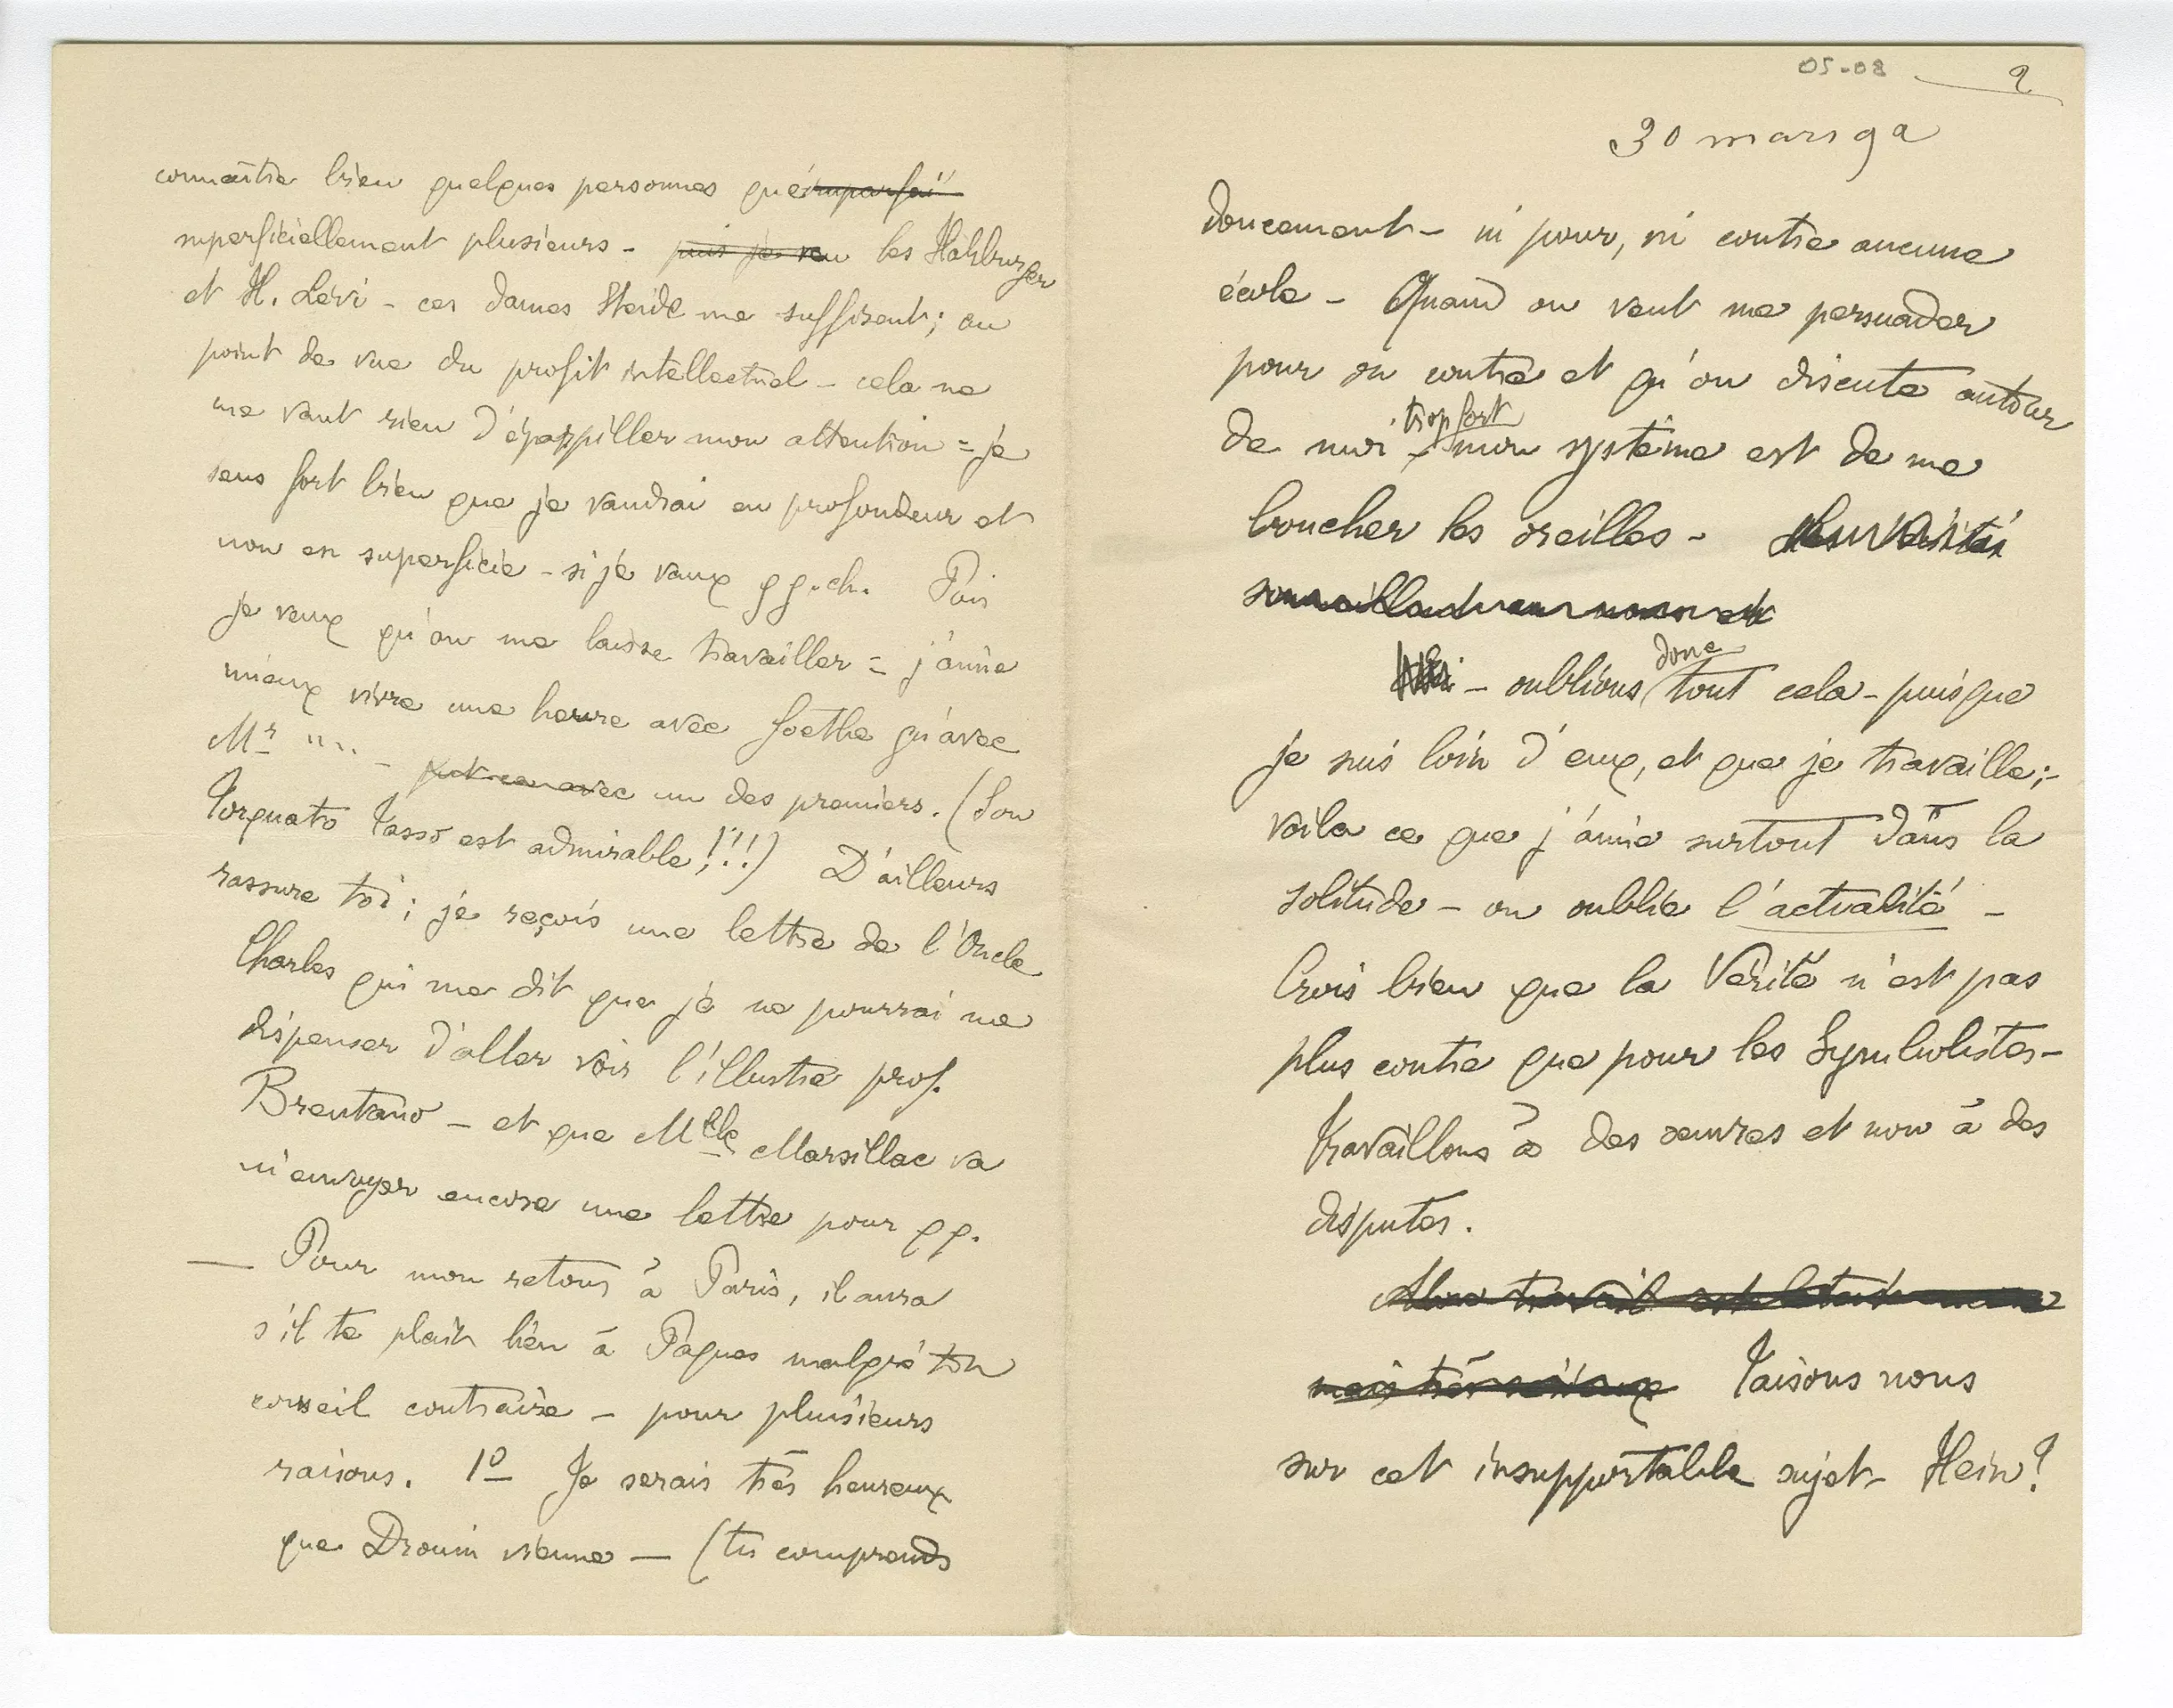 connaître bien quelques personnes que imparfai
superficiellement plusieurs - puis je les
et H. Lévi - ces dames me suffisent; au
point de vue du profit intellectuel - cela ne
me vaut rien d'éparpiller mon attention = je
sens fort bien que je vaudrai en profondeur et
non en superficie - si je vaux qq. ch. Puis
je veux qu'on me laisse travailler = j'aime
mieux vivre une heure avec Goethe qu'avec
Mr .... - avec un des premiers. (Son
Torquato Tasso est admirable!!!) D'ailleurs
rassure toi; je reçois une lettre de l'Oncle
Charles qui me dit que je ne pourrai me
dispenser d'aller voir l'illustre prof.
Brentano - et que Mlle Marsillac va
m'envoyer encore une lettre pour qq.
— Pour mon retour à Paris, il aura
s'il te plait lieu à Pâques malgré ton
conseil contraire - pour plusieurs
raisons. 1º Je serais très heureux
que Drouin vienne — (tu comprends
05-08 2
30 mars 92
doucement - ni pour, ni contre aucune
école - Quand on veut me persuader
pour ou contre et qu'on discute autour
de moi trop fort - mon système est de me
boucher les oreilles -
- oublions donc tout cela - puisque
je suis loin d'eux, et que je travaille; -
voila ce que j'aime surtout dans la
solitude - on oublie l'actualité -
Crois bien que la Vérité n'est pas
plus contre que pour les Symbolistes -
Travaillons à des œuvres et non à des
disputes.
Mon travail est
mais très Taisons nous
sur cet insupportable sujet - Hein?